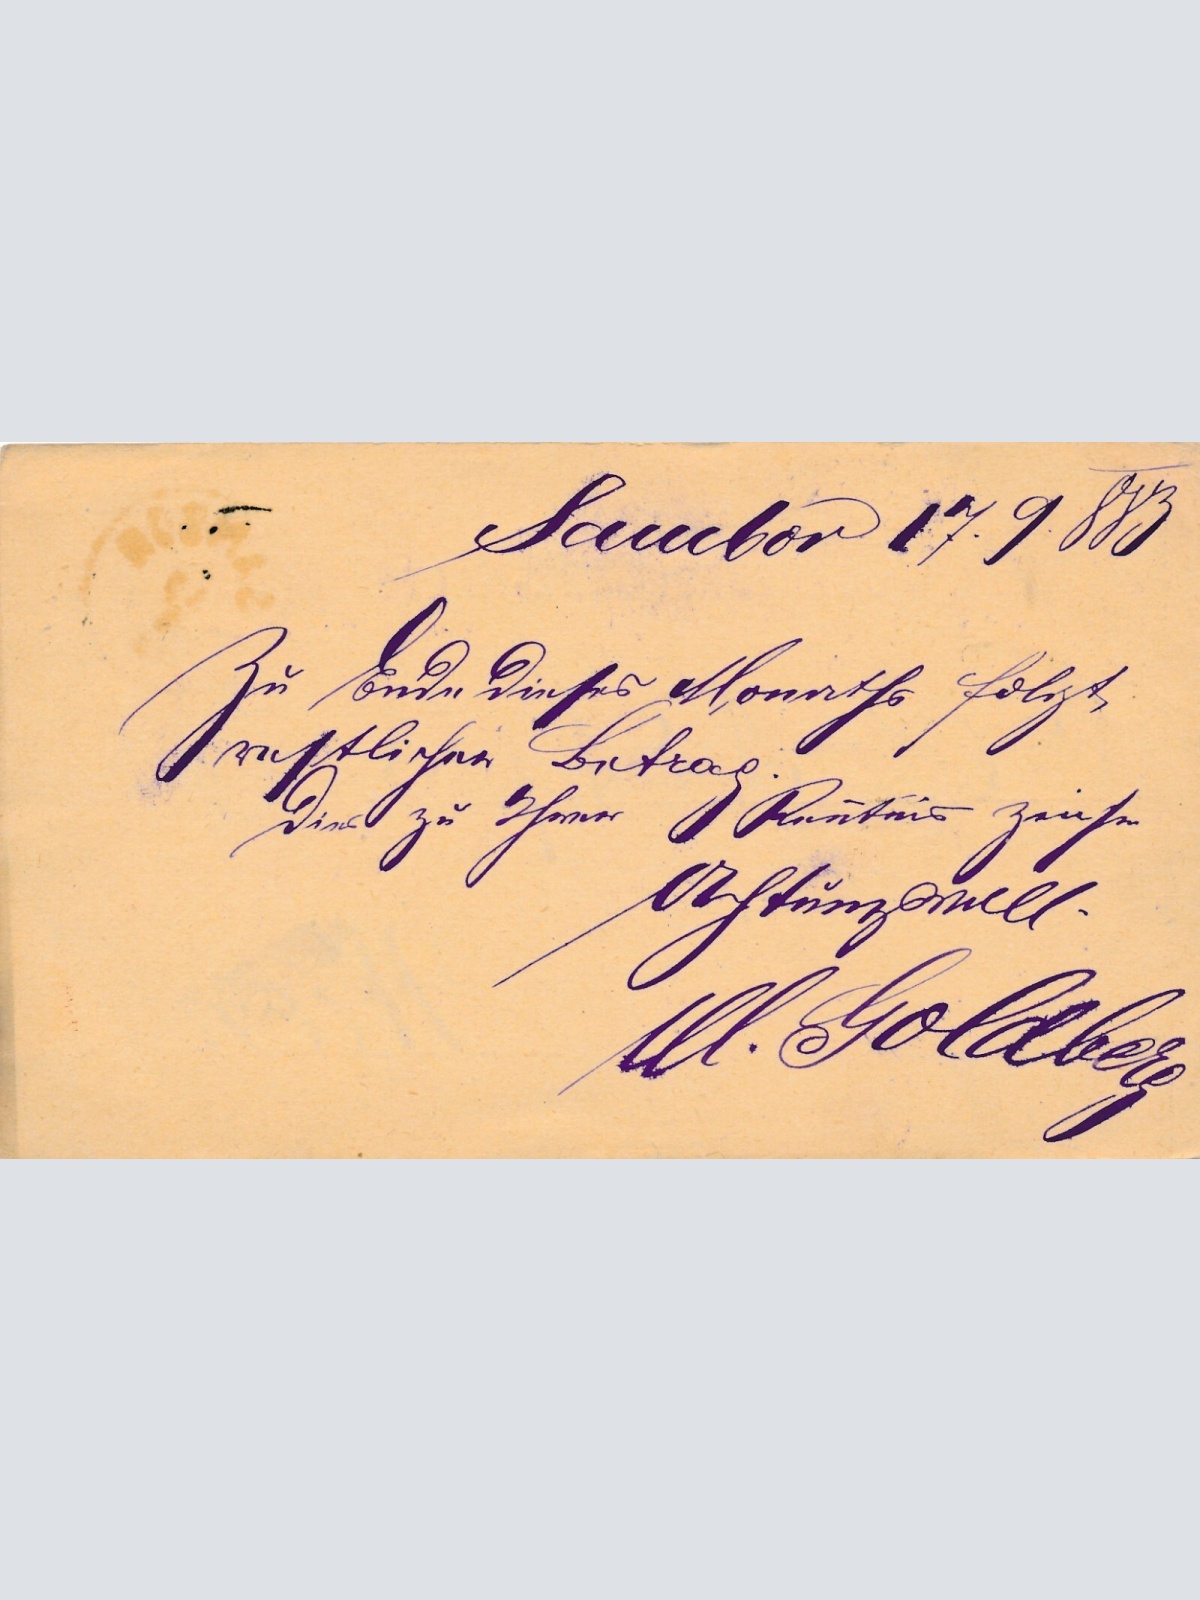 Sambor 17. 9. 883
Zu Ende dieses Monaths folgt
restlicher Betrag.
Dies zu Ihrer Kentnis zeichne
Achtungsvoll.
M. Goldberg